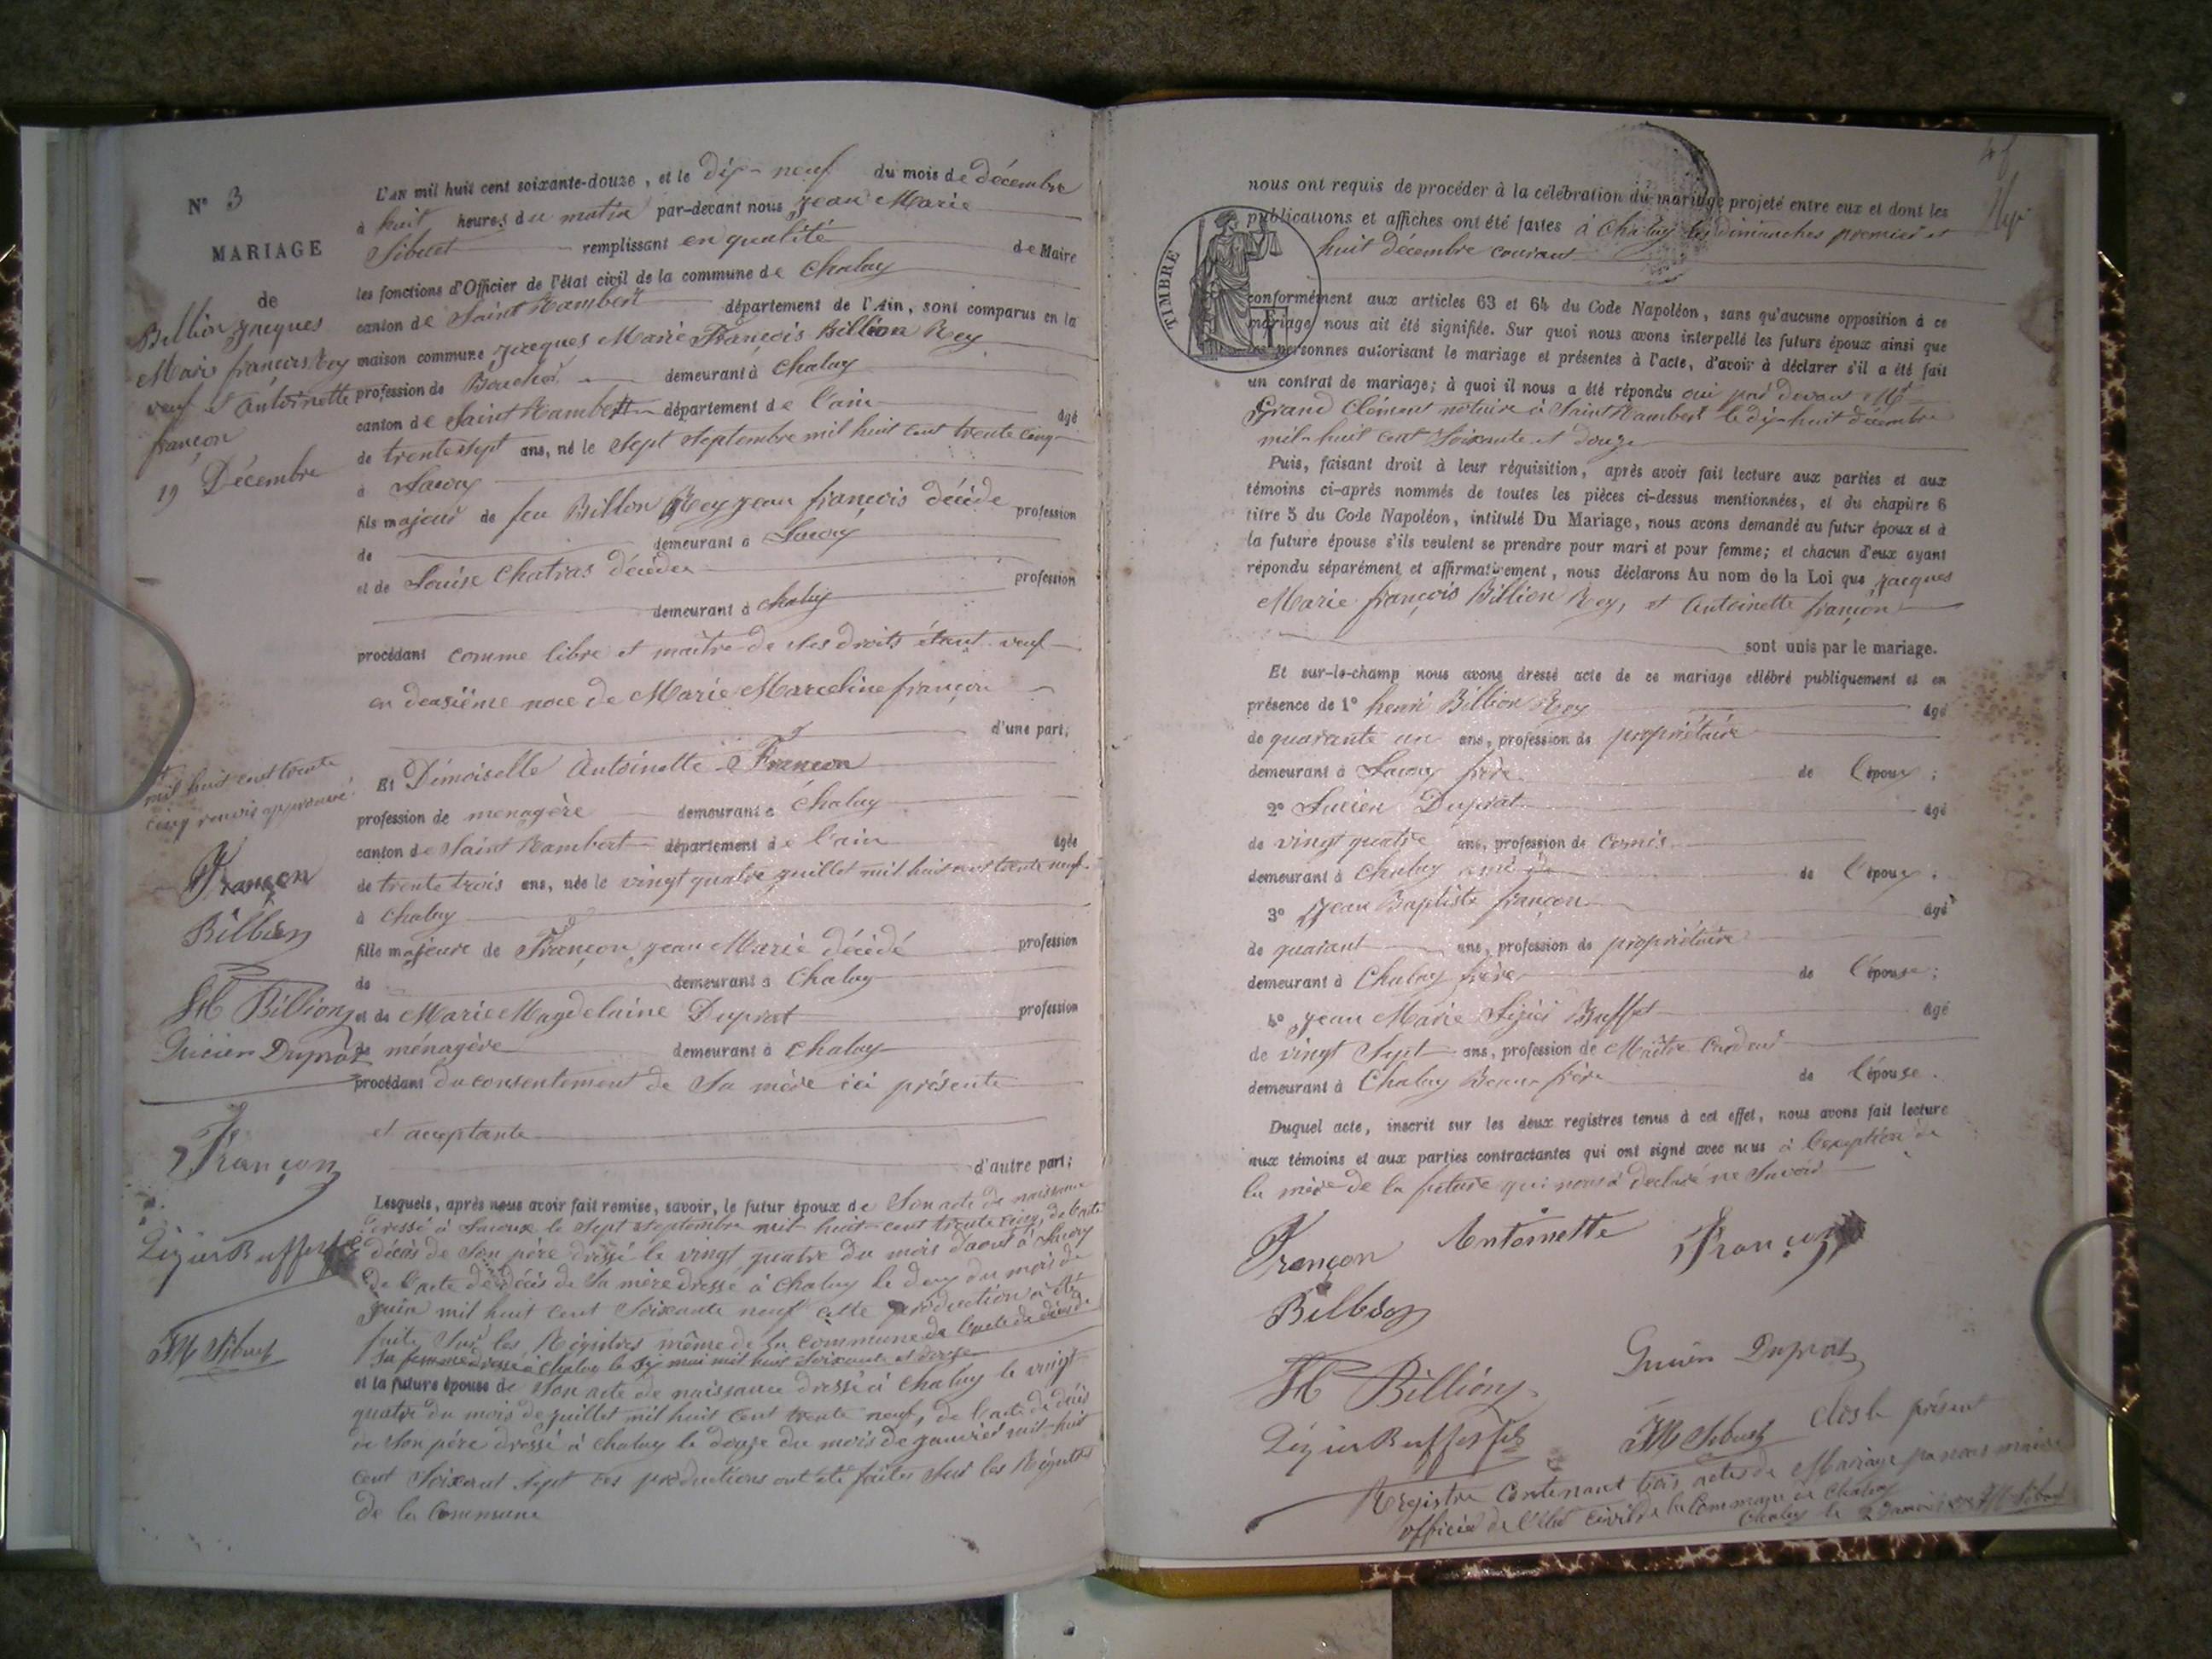 N° 3
MARIAGE
de
Billion Jacques
Marie françois Rey
veuf et Antoinette
françon
19 Décembre
L'an mil huit cent soixante-douze, et le dix-neuf du mois de décembre
à huit heures du matin par-devant nous Jean Marie
Sibuet remplissant en qualité de Maire
les fonctions d'Officier de l'état civil de la commune de Chaley
canton de Saint Rambert département de l'Ain, sont comparus en la
maison commune Jacques Marie François Billion Rey
profession de Boucher demeurant à Chaley
canton de Saint Rambert département de l'ain âgé
de trente sept ans, né le sept septembre mil huit cent trente cinq
à
fils majeur de feu Billon Rey jean françois décédé profession
de demeurant à
et de Louise Chatras décédée profession
demeurant à Chaley
procédant comme libre et maître de ses droits étant veuf
en deusième noce de Marie Marceline françon
d'une part;
mil huit cent trente
cinq renvoi approuvé
Et Démoiselle Antoinette Françon
profession de menagère demeurant à Chaley
canton de Saint Rambert département de l'ain âgée
de trente trois ans, née le vingt quatre juillet mil huit cent trente neuf
à Chaley
fille majeure de Françon jean Marie décédé profession
de demeurant à Chaley
et de Marie Magdelaine Duprat profession
de ménagère demeurant à Chaley
procédant du consentement de Sa mère ici présente
et acceptante
d'autre part;
Françon
Billion
H Billion
Lucien Duprat
Françon
Lizier Buffet fils
JM Sibuet
Lesquels, après nous avoir fait remise, savoir, le futur époux de Son acte de naissance
dressé à le sept septembre mil huit cent trente cinq, de l'acte
de décès de Son père dressé le vingt quatre du mois d'août à
de l'acte de décès de Sa mère dressé à Chaley le deux du mois de
juin mil huit cent soixante neuf cette production a été
faite Sur les Régistres même de la Commune de l'acte de décès de
sa femme dressé à Chaley le six mai mil huit soixante et douze
et la future épouse de Son acte de naissance dressé à Chaley le vingt
quatre du mois de juillet mil huit cent trente neuf, de l'acte de décès
de Son père dressé à Chaley le douze du mois de janvier mil huit
cent soixant sept ces productions ont été faites Sur les Régistres
de la Commune
nous ont requis de procéder à la célébration du mariage projeté entre eux et dont les
publications et affiches ont été faites à Chaley les dimanches premier et
huit décembre courant
TIMBRE
conformément aux articles 63 et 64 du Code Napoléon, sans qu'aucune opposition à ce
mariage nous ait été signifiée. Sur quoi nous avons interpellé les futurs époux ainsi que
les personnes autorisant le mariage et présentes à l'acte, d'avoir à déclarer s'il a été fait
un contrat de mariage; à quoi il nous a été répondu oui par devant Me
Grand Clément notaire à Saint Rambert le dix-huit décembre
mil-huit cent soixante et douze
Puis, faisant droit à leur réquisition, après avoir fait lecture aux parties et aux
témoins ci-après nommés de toutes les pièces ci-dessus mentionnées, et du chapitre 6
titre 5 du Code Napoléon, intitulé Du Mariage, nous avons demandé au futur époux et à
la future épouse s'ils veulent se prendre pour mari et pour femme; et chacun d'eux ayant
répondu séparément et affirmativement, nous déclarons Au nom de la Loi que Jacques
Marie françois Billion Rey, et Antoinette françon
sont unis par le mariage.
Et sur-le-champ nous avons dressé acte de ce mariage célébré publiquement et en
présence de 1° henri Billion Rey âgé
de quarante un ans, profession de propriétaire
demeurant à frère de l'époux;
2° Lucien Duprat âgé
de vingt quatre ans, profession de Comis
demeurant à Chaley ami de l'époux;
3° Jean Baptiste françon âgé
de quarant ans, profession de propriétaire
demeurant à Chaley frère de l'épouse;
4° Jean Marie Lizier Buffet âgé
de vingt Sept ans, profession de Maître Cardeur
demeurant à Chaley Beau frère de l'épouse.
Duquel acte, inscrit sur les deux registres tenus à cet effet, nous avons fait lecture
aux témoins et aux parties contractantes qui ont signé avec nous à l'exeption de
la mère de la future qui nous a declaré ne Savoir
Françon Antoinette Françon
Billion
H Billion Lucien Duprat
Lizier Buffet fils JM Sibuet Clos le présent
Régistre Contenant trois actes de Mariage par nous maire
officier de l'Etat Civil de la Commune de Chaley
Chaley le 2 Janvier JM Sibuet